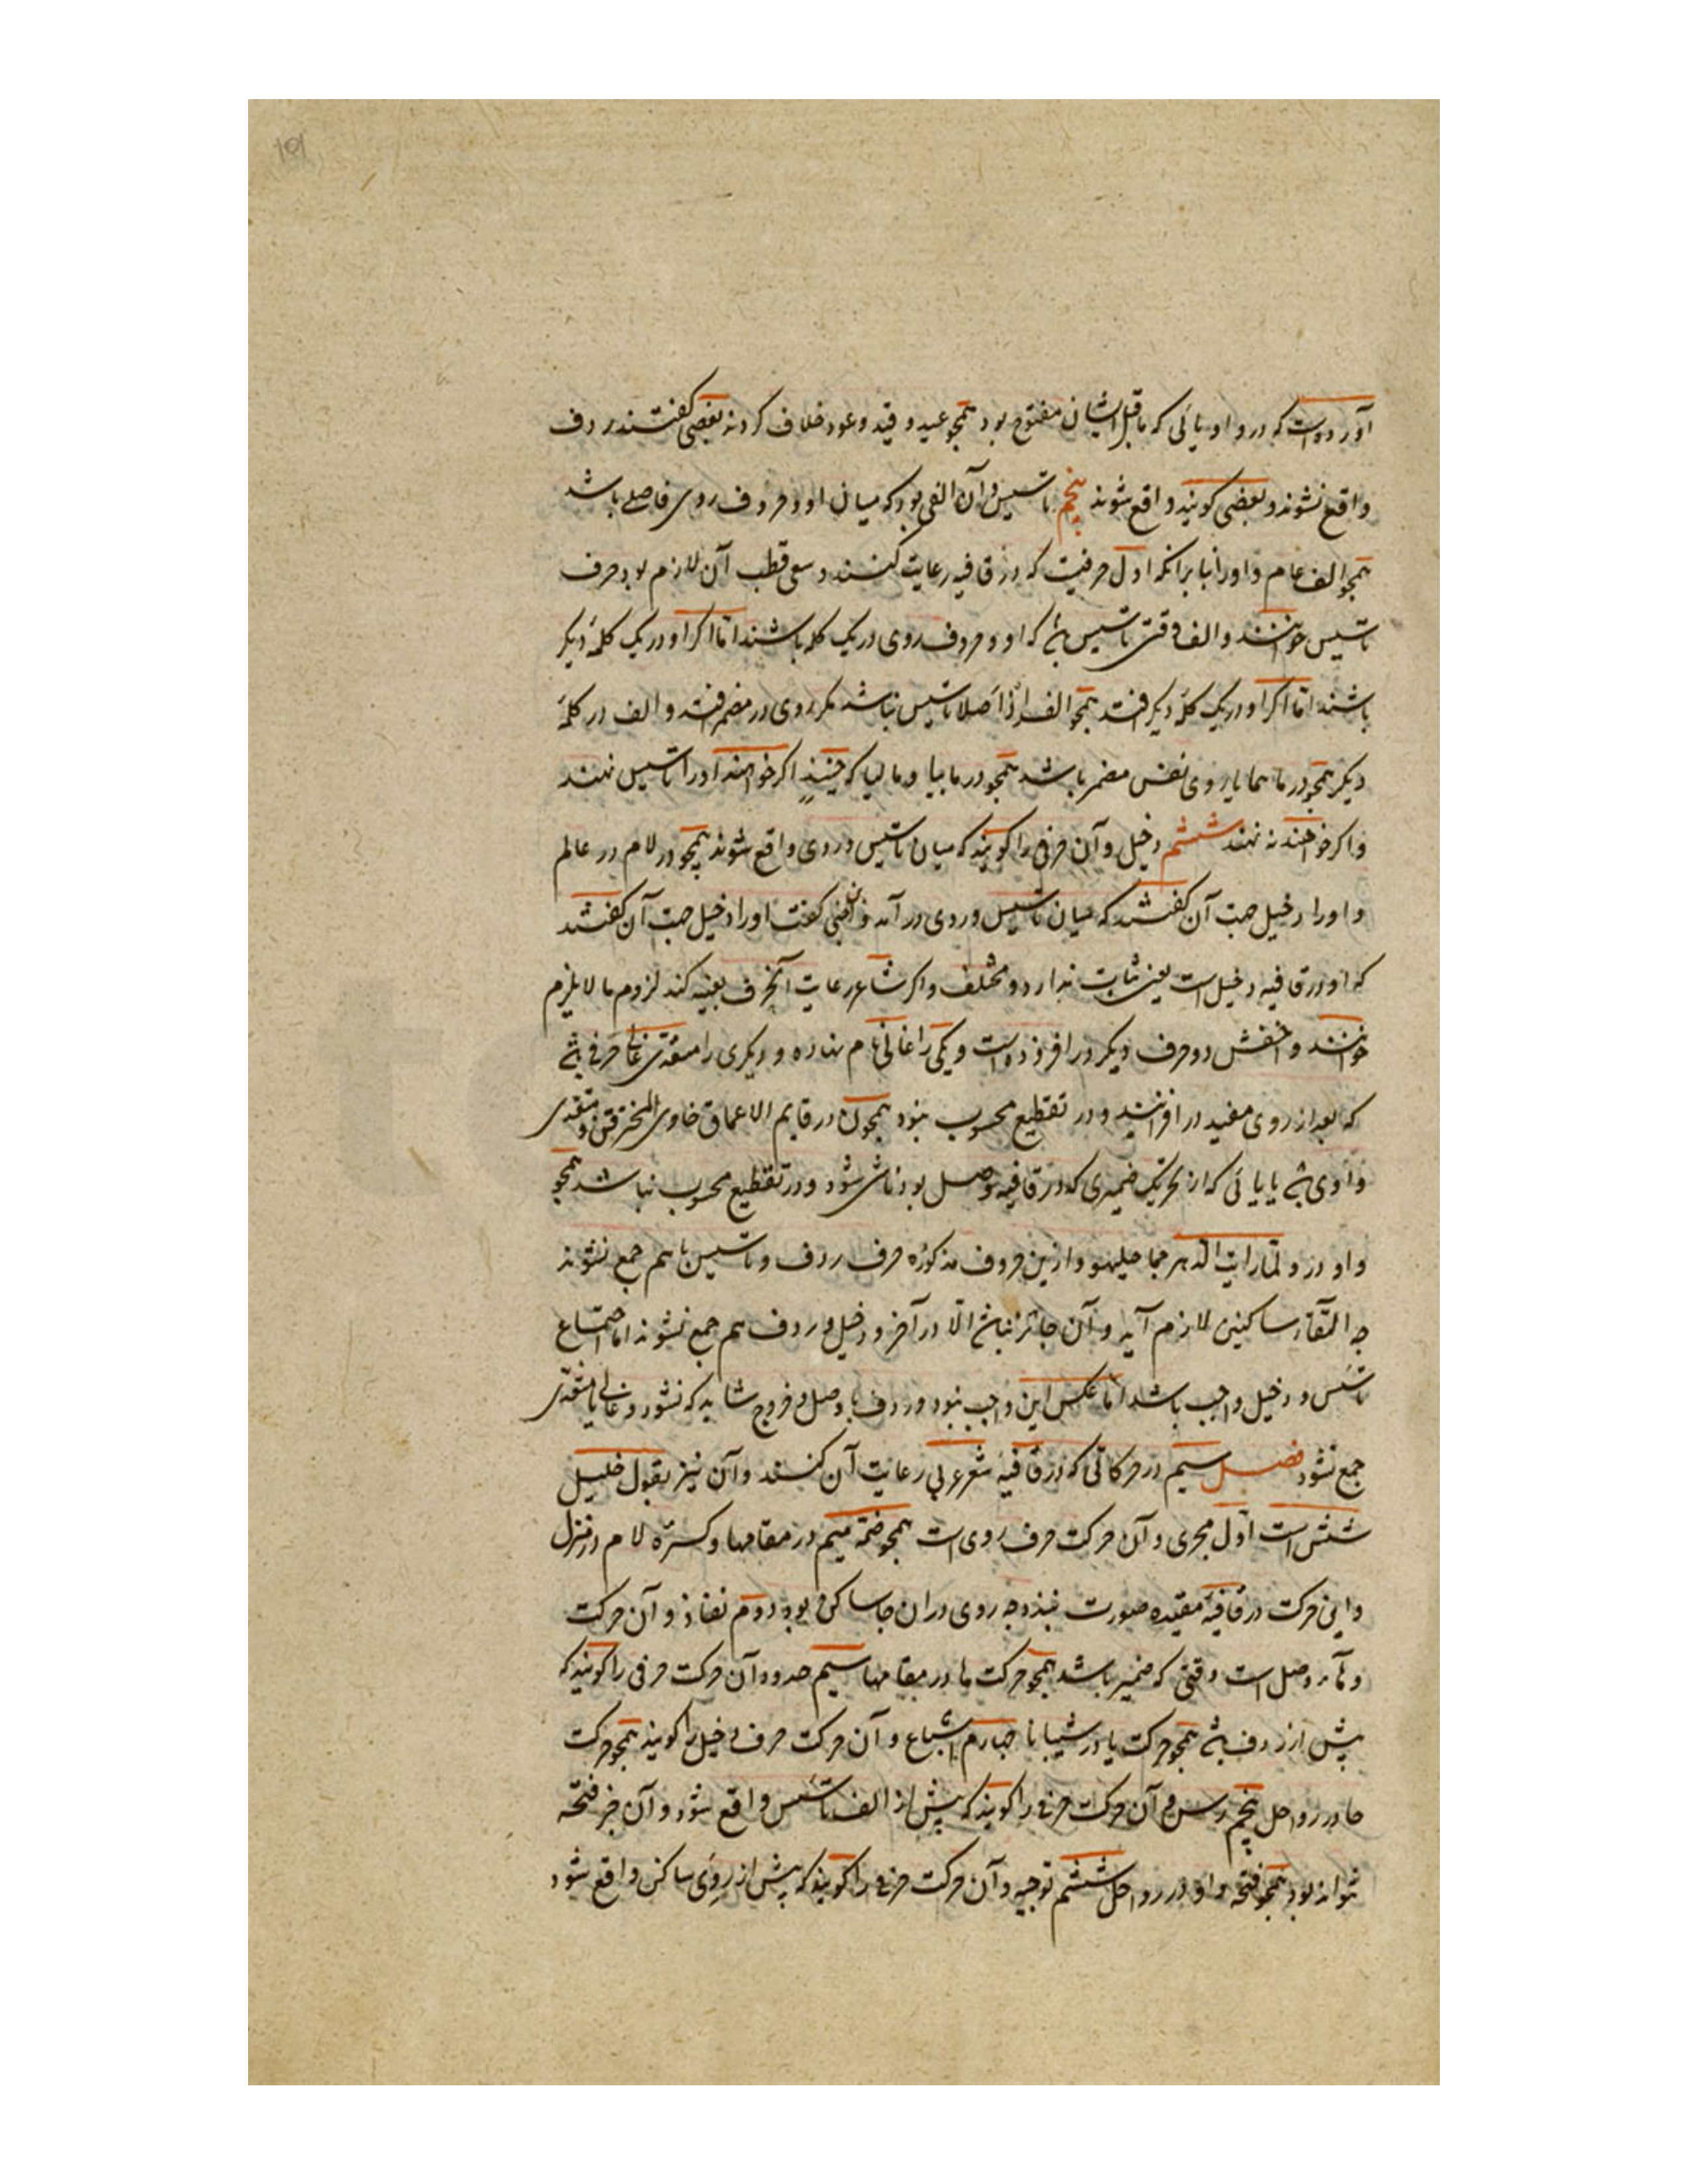 آورده‌است که در واو و یائی که ماقبل ایشان مفتوح بود همچو عید و قید و عود خلاف کردند بعضی گفتند ردف
واقع نشوند و بعضی کویند واقع شوند پنجم تاسیس و آن الفی بود که میان او و حروف روی فاصله باشد
همچو الف عام و اورا بنا برانکه اول حرفیست که در قافیه رعایت کنند و سعی قطب آن لازم بود حرف
تاسیس خوانند و الف وقتی تاسیس باشد که او و حروف روی در یک کلمه باشند اما اکر او در یک کلمهٔ دیکر
باشند اما اکر او در یک کلمهٔ دیکر افتد همچو الف اذا اصلا تاسیس نباشد مکر روی در مضمر افتد و الف در کلمهٔ
دیکر همچو در ما هما یا روی نفس مضمر باشد همچو در مابیا و مالیا که حینئذٍ اکر خواهند اورا تاسیس نهند
و اکر خواهند نه نهند ششم دخیل و آن حرفی را کویند که میان تاسیس و روی واقع شوند همچو در لام در عالم
و اورا دخیل جهت آن گفتند که میان تاسیس و روی در آمد و ابن جنی کفت اورا دخیل جهت آن کفتند
که او در قافیه دخیل است یعنی ثابت ندارد و مختلف و اکر شاعر رعایت آنحرف بعینه کند لزوم ما لا یلزم
خوانند و اخفش دو حرف دیکر در افزوده‌است و یکی را غالی نام نهاده و دیکری را متعدی غالی حرفی باشد
که بعد از روی مقید در افزایند و در تقطیع محسوب نبود همچون در قایم الاعماق خاوی المخترقن و متعدی
واوی باشد یا یائی که از تحریک ضمیری که در قافیه وصل بود ناشی شود و در تقطیع محسوب نباشد همچو
واو در و لما رایت الدهر جما حلیهو و ازین حروف مذکوره حرف ردف و تاسیس با هم جمع نشوند
چه التقاء ساکنین لازم آید و آن جائز نباشد الا در آخر و دخیل و ردف هم جمع نشوند اما اجتماع
تاسیس و دخیل واجب باشد اما عکس این واجب نبود و ردف با وصل و خروج شاید که نشود و غالی با متعدی
جمع نشود فصل سیم در حرکاتی که در قافیهٔ شعر عربی رعایت آن کنند و آن نیز بقول خلیل
شش است اول مجری و آن حرکت حرف روی است همچو ضمهٔ میم در مقامها و کسرهٔ لام در منزل
و این حرکت در قافیهٔ مقیده صورت نبندد چه روی دران جا ساکن بود دوم نفاذ و آن حرکت
و هآء وصل است وقتی که ضمیر باشد همچو حرکت ها در مقامها سیم حدو و آن حرکت حرفی را کویند که
پیش از ردف باشد همچو حرکت یا در شیبانا چهارم اشباع و آن حرکت حرف دخیل را کویند همچو حرکت
حا در رواحل پنجم رس و آن حرکت حرفی را کویند که پیش از الف تاسیس واقع شود و آن جز فتحه
نتواند بود همچو فتحه واو در رواحل ششم توجیه و آن حرکت حرفی را کویند که پیش از روی ساکن واقع شود